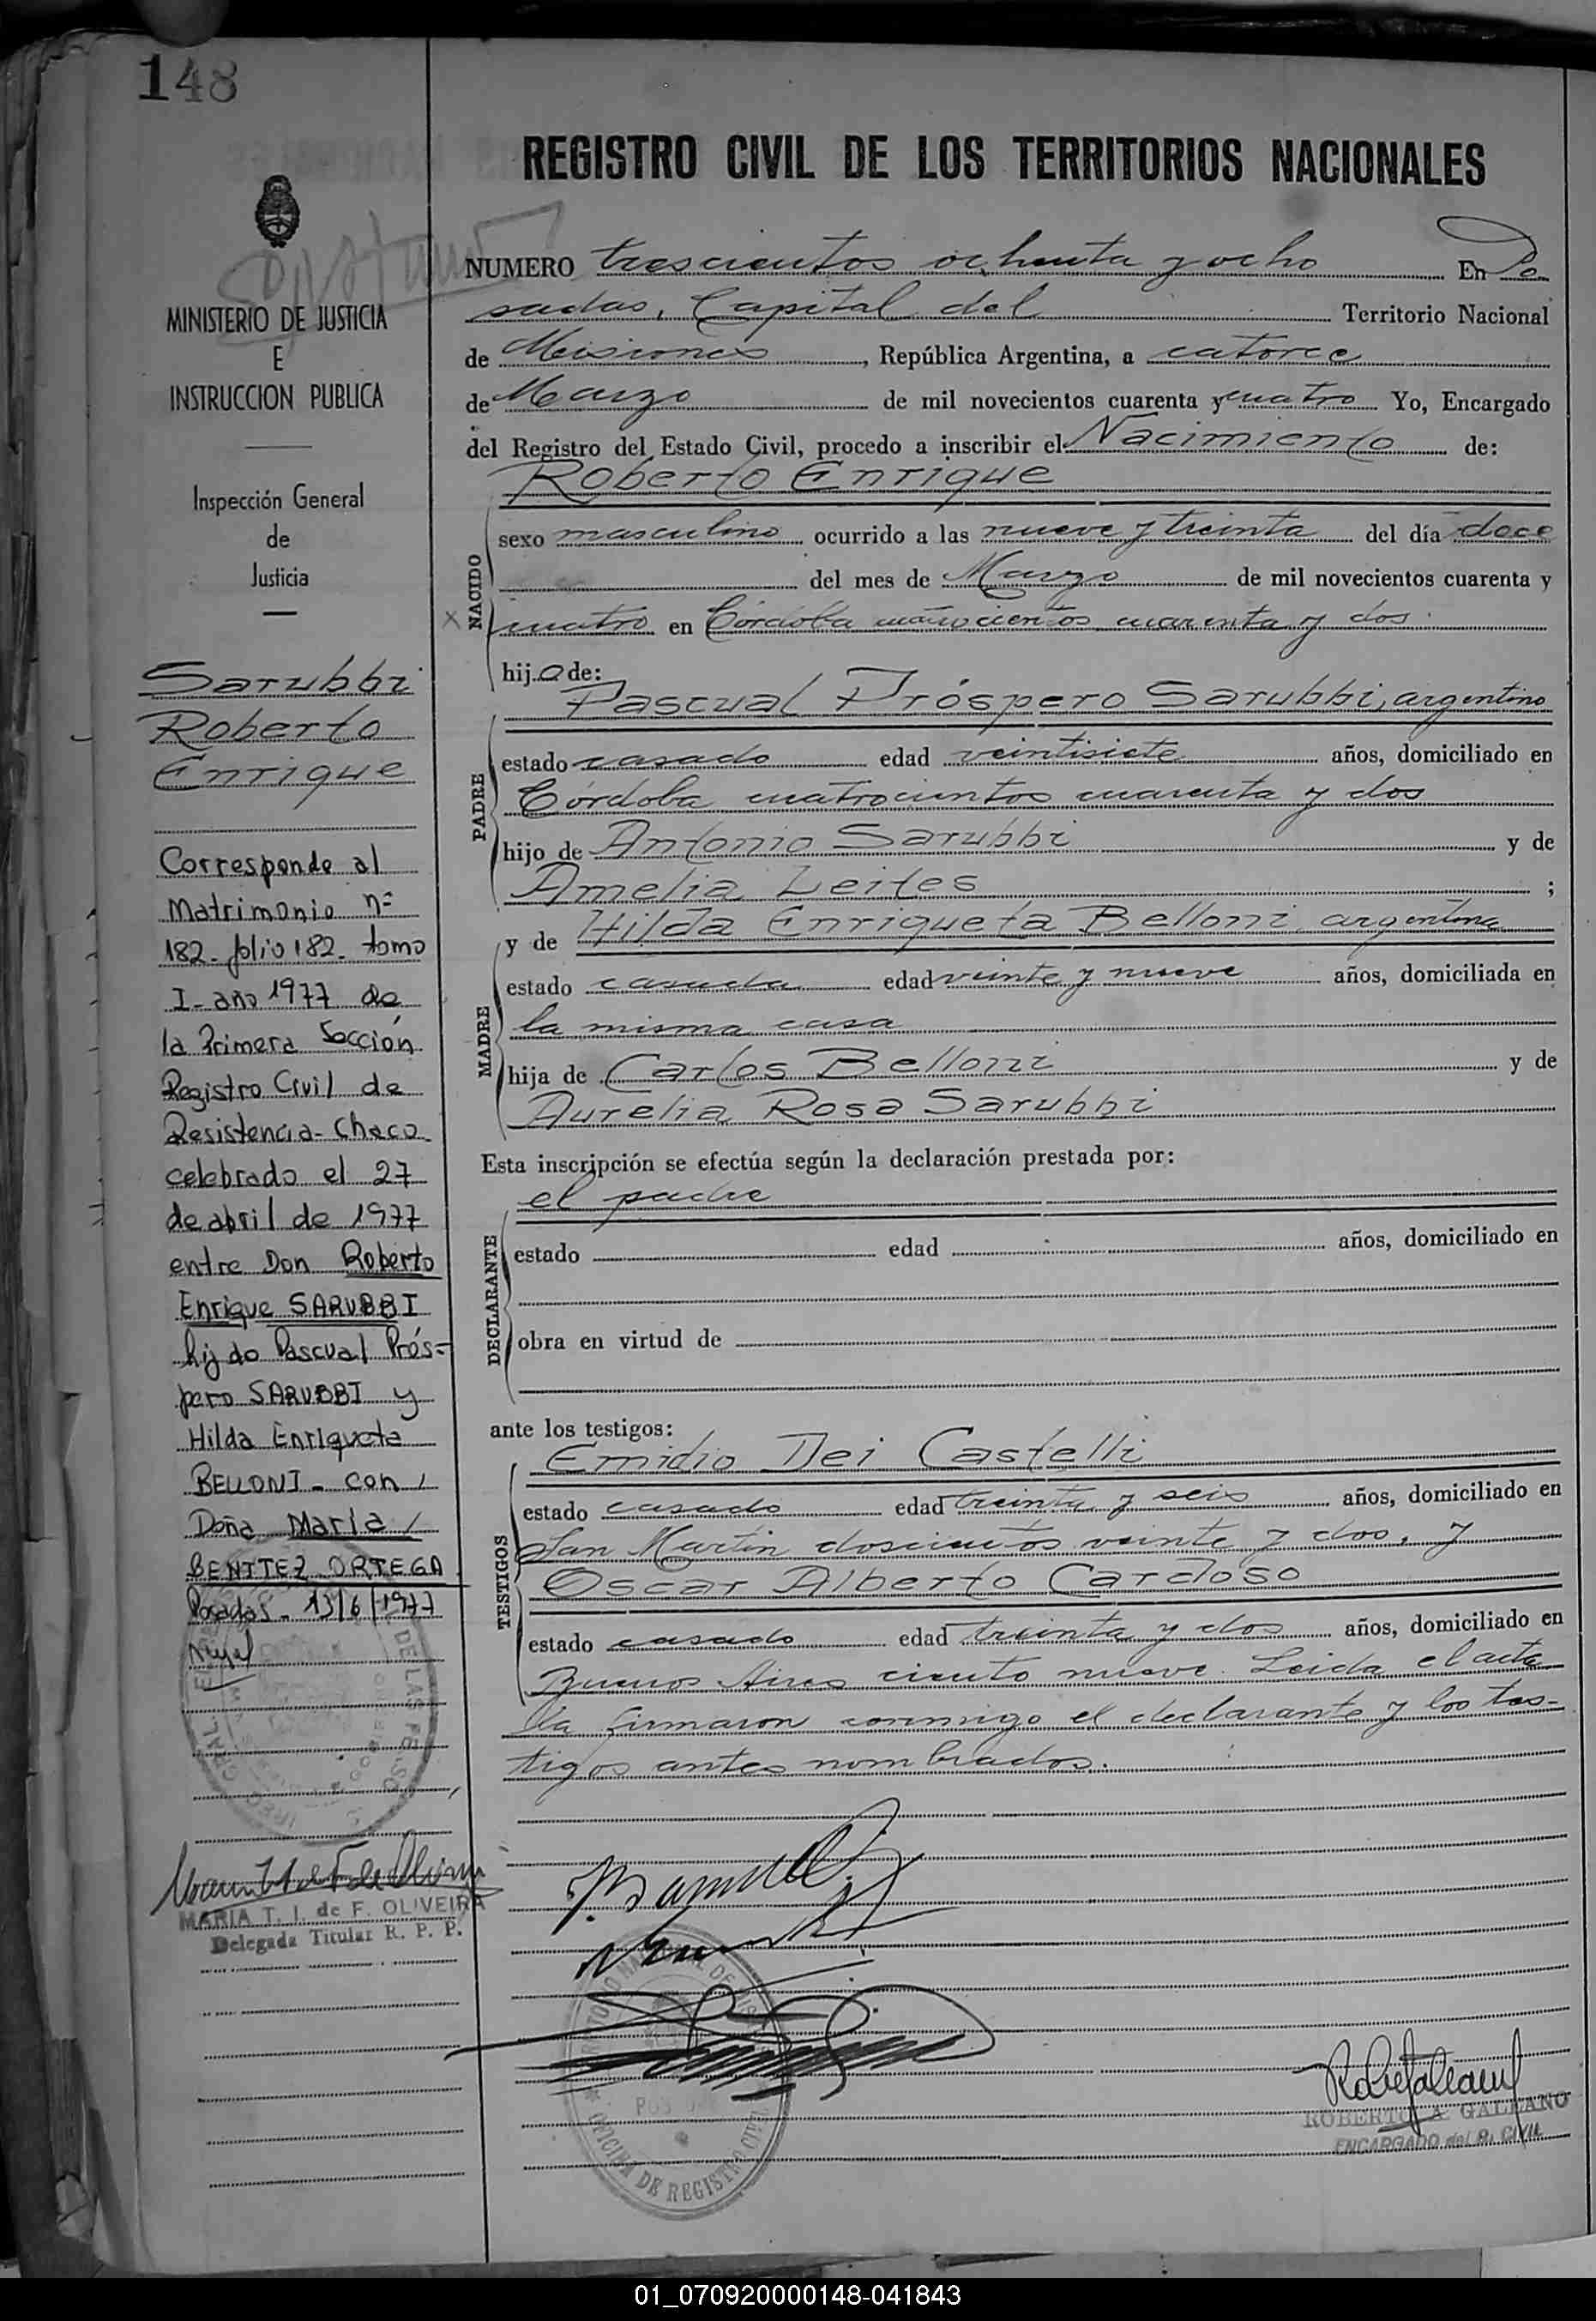 148
REGISTRO CIVIL DE LOS TERRITORIOS NACIONALES
MINISTERIO DE JUSTICIA
E
INSTRUCCION PUBLICA
Inspección General
de
Justicia
Sarubbi
Roberto
Enrique
Corresponde al
Matrimonio nº
182 - folio 182 - tomo
I - año 1977 de
la Primera Sección
Registro Civil de
Resistencia - Chaco
celebrado el 27
de abril de 1977
entre Don Roberto
Enrique SARUBBI
hijo de Pascual Prós-
pero SARUBBI y
Hilda Enriqueta
BELLONI - con
Doña María
BENITEZ ORTEGA
Posadas - 13/6/1977
MARIA T. I. de F. OLIVEIRA
Delegada Titular R. P. P.
NUMERO trescientos ochenta y ocho En Po
sadas, Capital del Territorio Nacional
de Misiones, República Argentina, a catorce
de Marzo de mil novecientos cuarenta y cuatro Yo, Encargado
del Registro del Estado Civil, procedo a inscribir el Nacimiento de:
Roberto Enrique
NACIDO
sexo masculino ocurrido a las nueve y treinta del día doce
del mes de Marzo de mil novecientos cuarenta y
cuatro en Córdoba cuatrocientos cuarenta y dos
hijo de:
Pascual Próspero Sarubbi, argentino
PADRE
estado casado edad veintisiete años, domiciliado en
Córdoba cuatrocientos cuarenta y dos
hijo de Antonio Sarubbi y de
Amelia Leites ;
y de Hilda Enriqueta Belloni argentina
MADRE
estado casada edad veinte y nueve años, domiciliada en
la misma casa
hija de Carlos Belloni y de
Aurelia Rosa Sarubbi
Esta inscripción se efectúa según la declaración prestada por:
el padre
DECLARANTE
estado edad años, domiciliado en
obra en virtud de
ante los testigos:
Emidio Dei Castelli
TESTIGOS
estado casado edad treinta y seis años, domiciliado en
San Martin doscientos veinte y dos, y
Oscar Alberto Cardoso
estado casado edad treinta y dos años, domiciliado en
Buenos Aires ciento nueve. Leida el acta
la firmaron conmigo el declarante y los tes-
tigos antes nombrados.
OFICINA DE REGISTRO CIVIL
ROBERTO A GALEANO
ENCARGADO del R. CIVIL
01_070920000148-041843